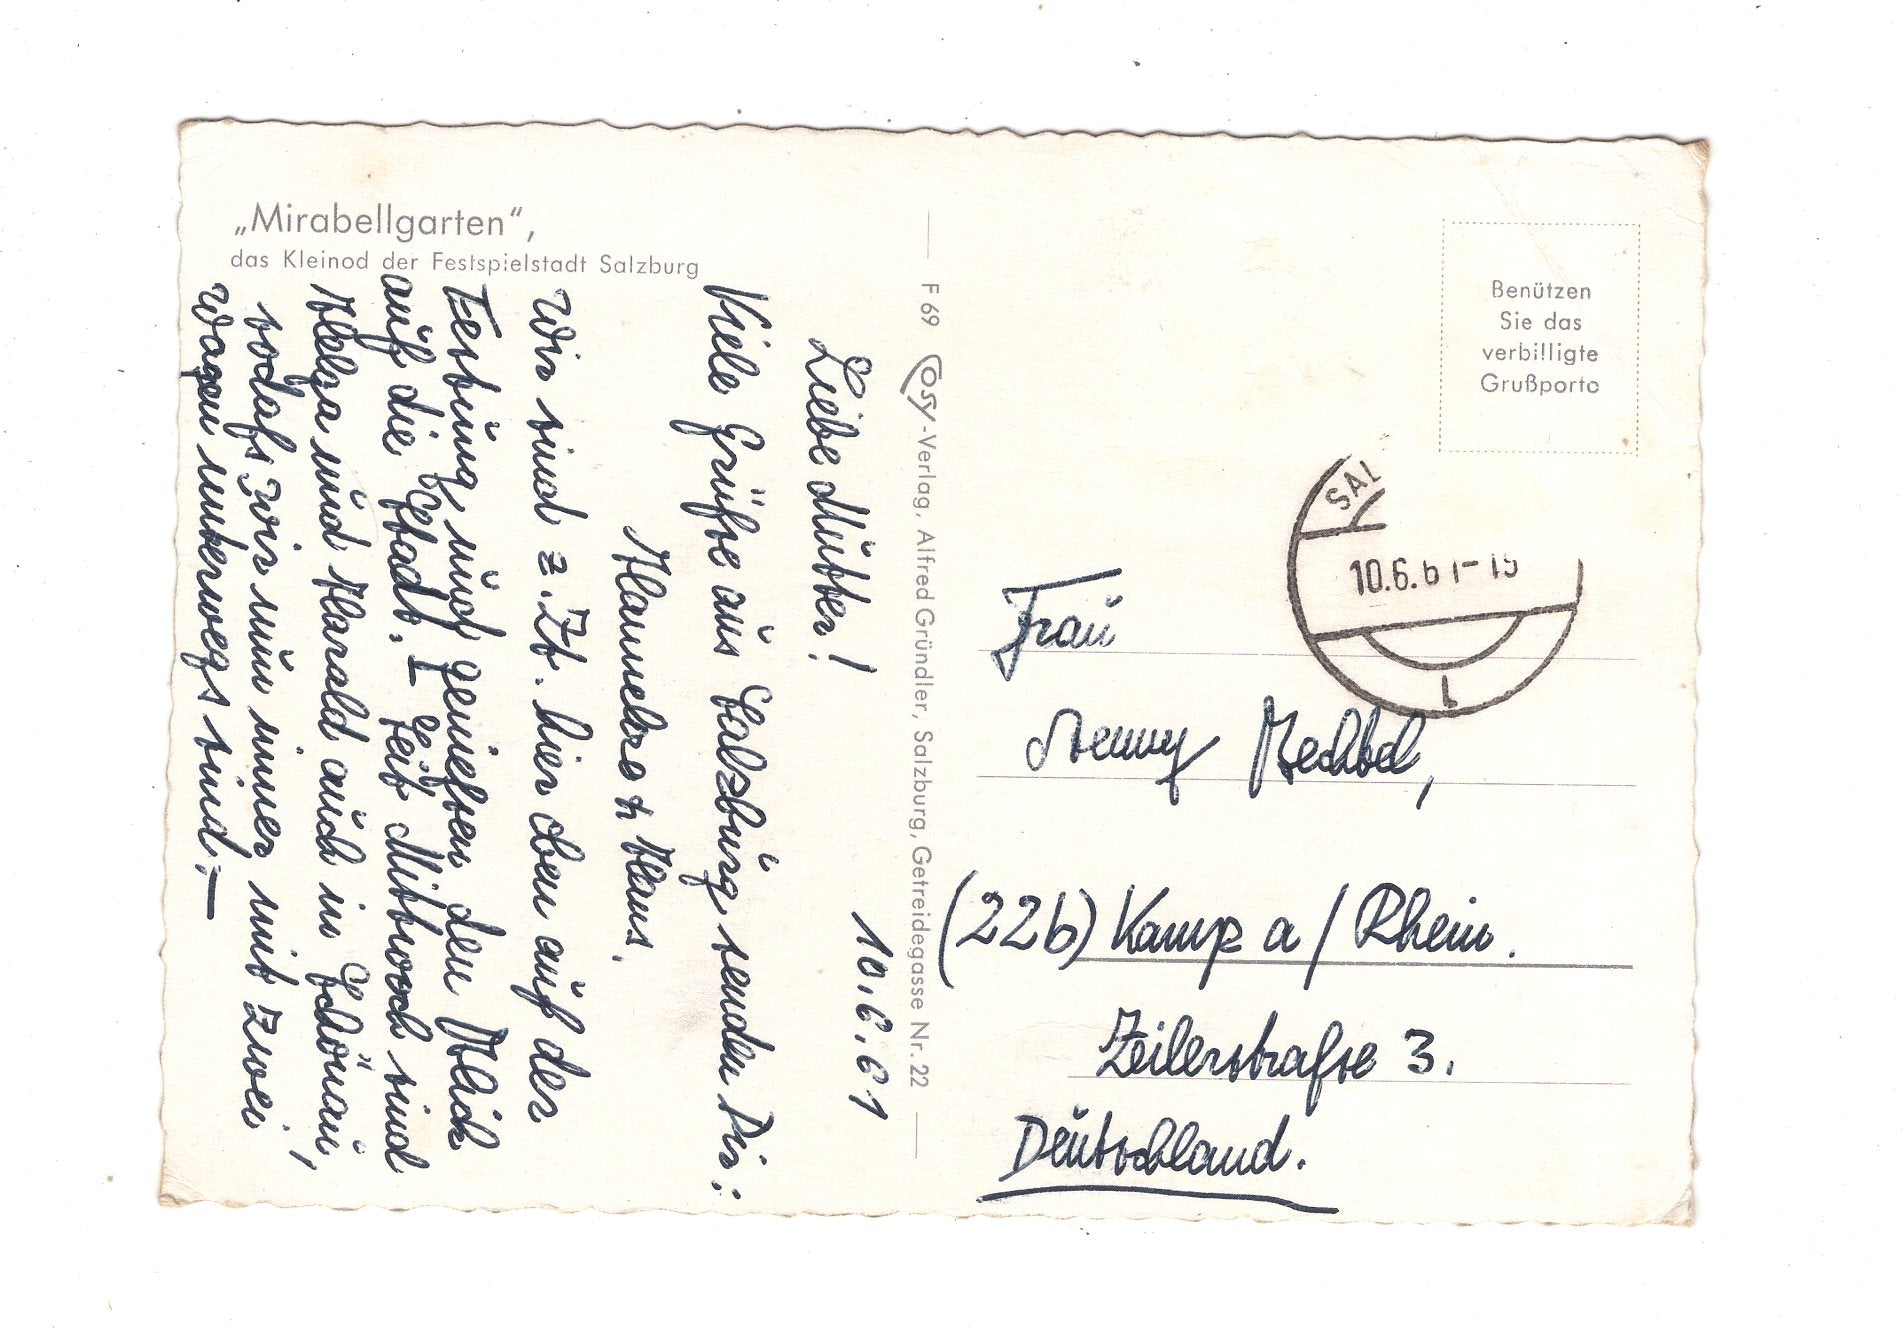 „Mirabellgarten“,
das Kleinod der Festspielstadt Salzburg
10.6.61
Liebe Mutter!
Viele Grüße aus Salzburg senden Dir:
Hannelore & Klaus.
Wir sind z. Zt. hier oben auf der
Festung und genießen den Blick
auf die Stadt. – Seit Mittwoch sind
Helga und Harald auch in Schönau,
sodaß wir nun immer mit zwei
Wagen unterwegs sind. –
F 69 Cosy-Verlag, Alfred Gründler, Salzburg, Getreidegasse Nr. 22
Benützen
Sie das
verbilligte
Grußporto
SAL
10.6.61-15
1
Frau
Bechtel,
(22b) Kamp a/Rhein.
Zeilerstraße 3.
Deutschland.